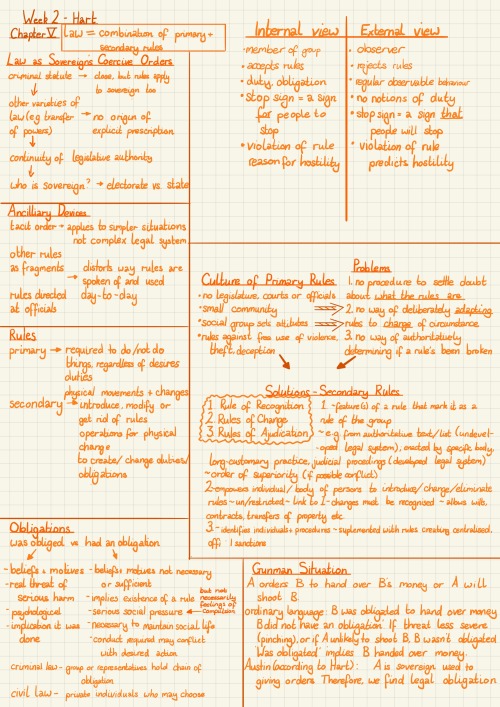 Week 2 - Hart
Chapter V
law = combination of primary +
secondary rules
Law as Sovereign's Coercive Orders
criminal statute → close, but rules apply
to sovereign too
other varieties of
law (eg transfer → no origin of
of powers) explicit prescription
continuity of legislative authority
who is sovereign? → electorate vs. state
Ancilliary Devices
tacit order → applies to simpler situations
not complex legal system
other rules
as fragments → distorts way rules are
spoken of and used
rules directed day-to-day
at officials
Rules
primary → required to do/not do
things, regardless of desires
duties
physical movements + changes
secondary → introduce, modify or
get rid of rules
operations for physical
change
to create/change duties/
obligations
Obligations
was obliged vs had an obligation
- beliefs + motives
- real threat of
serious harm
- psychological
- implication it was
done
- beliefs + motives not necessary
or sufficient
- implies existence of a rule
- serious social pressure ← but not necessarily feelings of compulsion
- necessary to maintain social life
- conduct required may conflict
with desired action
criminal law - group or representatives hold chain of
obligation
civil law - private individuals who may choose
Internal view
• member of group
• accepts rules
• duty, obligation
• Stop sign = a sign
for people to
stop
• violation of rule
reason for hostility
External view
• observer
• rejects rules
• regular observable behaviour
• no notions of duty
• stop sign = a sign that
people will stop
• violation of rule
predicts hostility
Culture of Primary Rules
• no legislature, courts or officials
• small community
• social group sets attitudes
• rules against free use of violence,
theft, deception
Problems
1. no procedure to settle doubt
about what the rules are
2. no way of deliberately adapting
rules to change of circumstance
3. no way of authoritatively
determining if a rule's been broken
Solutions - Secondary Rules
1. Rule of Recognition
2. Rules of Change
3. Rules of Ajudication
1 - feature(s) of a rule that mark it as a
rule of the group
~ e.g from authoritative text/list (undevel-
oped legal system), enacted by specific body,
long-customary practice, judicial proceedings (developed legal system)
~ order of superiority (if possible conflict)
2 - empowers individual/body of persons to introduce/change/eliminate
rules ~ un/restricted ~ link to 1 - changes must be recognised ~ allows wills,
contracts, transfers of property etc
3 - identifies individuals + procedures ~ suplemented with rules creating centralised,
offi sanctions
Gunman Situation
A orders B to hand over B's money or A will
shoot B.
ordinary language: B was obligated to hand over money
B did not have an obligation. If threat less severe
(pinching), or if A unlikely to shoot B, B wasn't obligated
'Was obligated' implies B handed over money.
Austin (according to Hart): A is sovereign used to
giving orders. Therefore, we find legal obligation